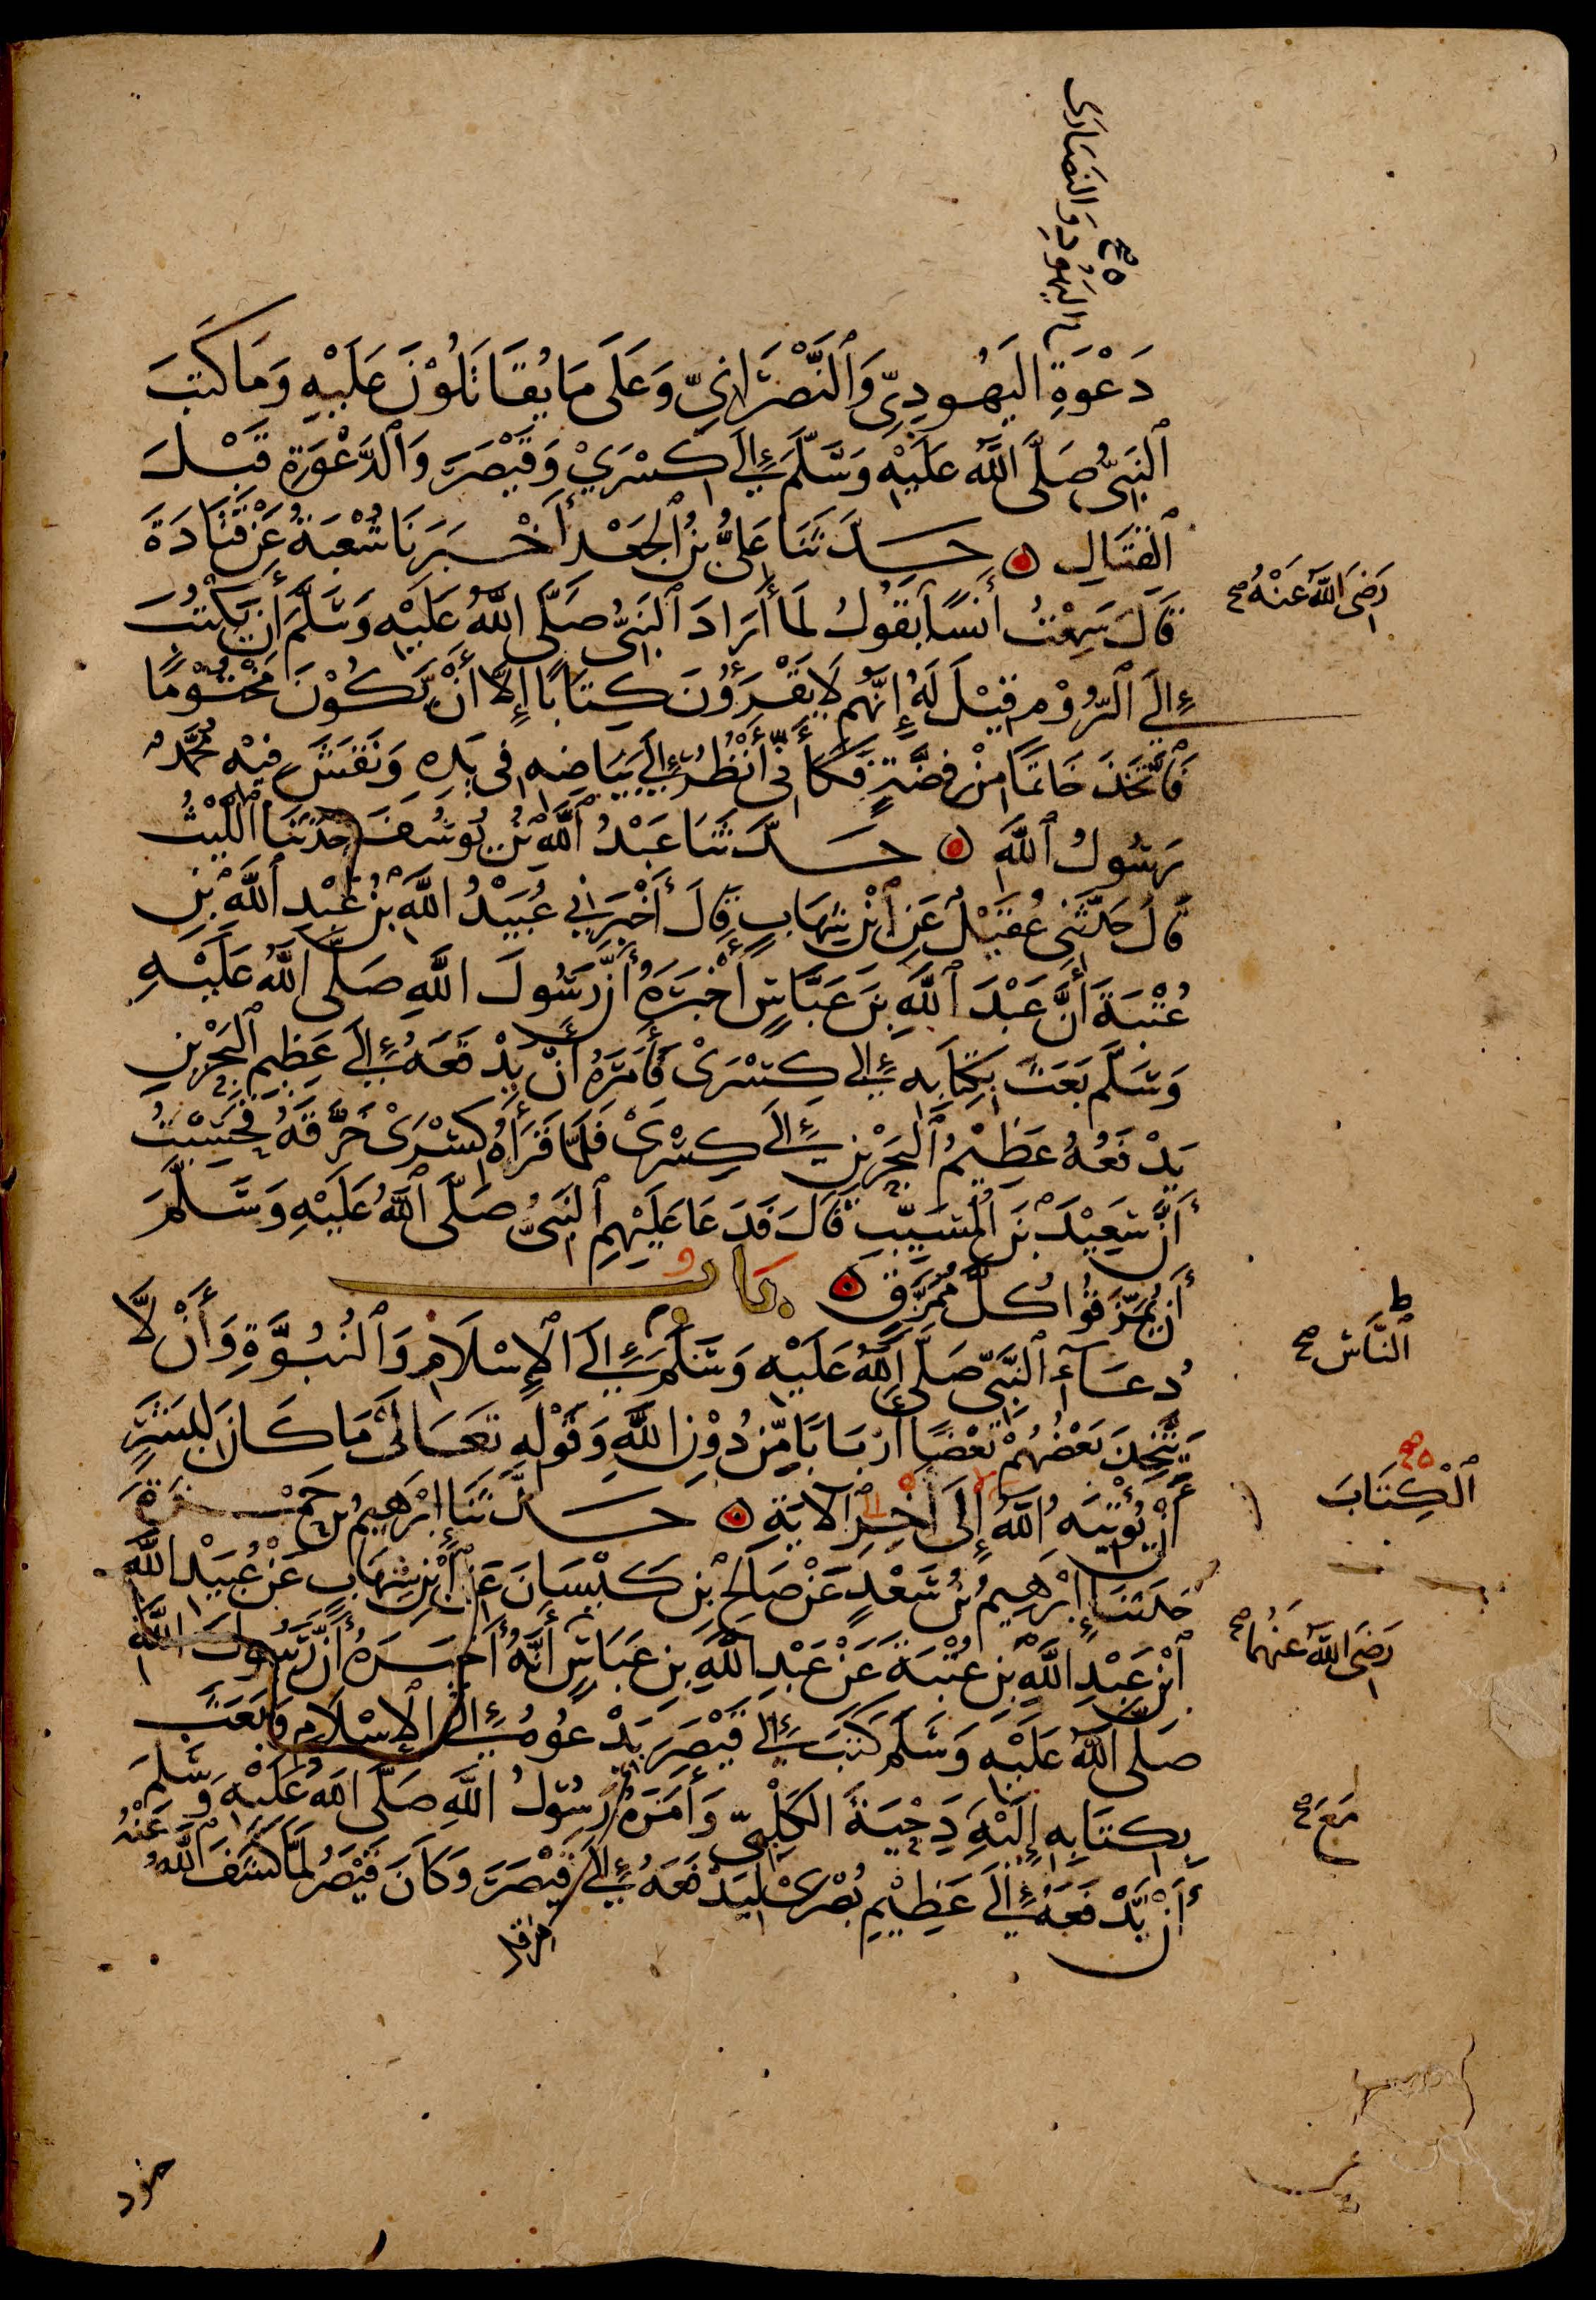 اليَهُودِ وَالنَصَارَى
صح
دَعْوَةِ اليَهُودِيِّ وَٱلنَّصْرَانِيِّ وَعَلَى مَا يُقَاتَلُوْنَ عَلَيْهِ وَمَا كَتَبَ
ٱلنَبِىُّ صَلَّى ٱللَّهُ عَلَيْهِ وَسَلَّمَ إِلَى كِسْرَيْ وَقَيْصَرَ وَٱلدَّعْوَةِ قَبْلَ
ٱلقِتَالِ حَدَّثَنَا عَلِىُّ بْنُ ٱلجَعْدِ أَخْبَرَنَا شُعْبَةُ عَنْ قَتَادَةَ
قَالَ سَمِعْتُ أَنَسًا يَقُولُ لَمَّا أَرَادَ ٱلنَبِىُّ صَلَّى ٱللَّهُ عَلَيْهِ وَسَلَّمَ أَن يَّكْتُبَ
رَضِىَ ٱللَّهُ عَنْهُ صح
إِلَى ٱلرُّوْمِ قِيْلَ لَهُ إِنَّهُم لَا يَقْرَؤُنَ كِتَابًا إِلَّا أَنْ يَّكُوْنَ مَخْتُوْمًا
فَٱتَّخَذَ خَاتَمًا مِنْ فِضَّةٍ فَكَأَنِّى أَنْظُرُ إِلَى بَيَاضِهِ فِى يَدِهِ وَنَقَشَ فِيْهِ مُحَمَّدٌ
رَسُولُ ٱللَّهِ حَدَّثَنَا عَبْدُ ٱللَّهِ بْنُ يُوسُفَ حَدَّثَنَا اللَّيْثُ
قَالَ حَدَّثَنِى عُقَيْلٌ عَنِ ٱبْنِ شِهَابٍ قَالَ أَخْبَرَنِي عُبَيْدُ اللَّهِ بْنُ عَبْدِ ٱللَّهِ بْنِ
عُتْبَةَ أَنَّ عَبْدَ ٱللَّهِ بْنَ عَبَّاسٍ أَخْبَرَهُ أَنَّ رَسُولَ اللَّهِ صَلَّى ٱللَّهُ عَلَيْهِ
وَسَلَّمَ بَعَثَ بِكِتَابِهِ إِلَى كِسْرَىْ فَأَمَرَهُ أَنْ يَدْفَعَهُ إِلَى عَظِيمِ ٱلبَحْرَيْنِ
يَدْفَعُهُ عَظِيْمُ ٱلبَحْرَيْنِ إِلَى كِسْرَىْ فَلَمَّا قَرَأَهُ كِسْرَىْ خَرَّقَهُ فَحَسِبْتُ
أَنَّ سَعِيْدَ بْنَ المُسَيَّبِ قَالَ فَدَعَا عَلَيْهِمِ ٱلنَبِىُّ صَلَّى ٱللَّهُ عَلَيْهِ وَسَلَّمَ
أَن يُمَزَّقُوْا كُلَّ مُمَزَّقٍ بَابُ
دُعَآءِ ٱلنَبِىِّ صَلَّى ٱللَّهُ عَلَيْهِ وَسَلَّمَ إِلَى ٱلإِسْلَامِ وَٱلنُبُوَّةِ وَأَنْ لَّا
ٱلنَّاسَ صح
يَتَّخِذَ بَعْضُهُمْ بَعْضًا أَرْبَابًا مِّن دُوْنِ اللَّهِ وَقَوْلِهِ تَعَالَىْ مَا كَانَ لِبَشَرٍ
أَنْ يُؤْتِيَهُ ٱللَّهُ إِلَى آخِرِ ٱلآيَةِ حَدَّثَنَا إِبْرَهِيمُ بْنُ حَمْزَةَ
ٱلْكِتَابَ
صح
حَدَّثَنَا إِبْرَهِيمُ بْنُ سَعْدٍ عَنْ صَالِحِ بْنِ كَيْسَانَ عَنِ ٱبْنِ شِهَابٍ عَنْ عُبَيْدِ اللَّهِ
ٱبْنِ عَبْدِ اللَّهِ بْنِ عُتْبَةَ عَنْ عَبْدِ اللَّهِ بْنِ عَبَّاسٍ أَنَّهُ أَخْبَرَهُ أَنَّ رَسُولَ اللَّهِ
رَضِىَ ٱللَّهُ عَنْهُمَا صح
صَلَّى اللَّهُ عَلَيْهِ وَسَلَّمَ كَتَبَ إِلَى قَيْصَرَ يَدْعُوهُ إِلَى ٱلإِسْلَامِ وَبَعَثَ
بِكِتَابِهِ إِلَيْهِ دِحْيَةَ الكَلْبِىِّ وَأَمَرَهُ رَسُوْلُ اللَّهِ صَلَّى اللَّهُ عَلَيْهِ وَسَلَّمَ
مَعَ صح
أَنْ يَّدْفَعَهُ إِلَى عَظِيْمِ بُصْرَىْ لِيَدْفَعَهُ إِلَى قَيْصَرَ وَكَانَ قَيْصَرُ لَمَّا كَشَفَ اللَّهُ
عَنْهُ
جنود